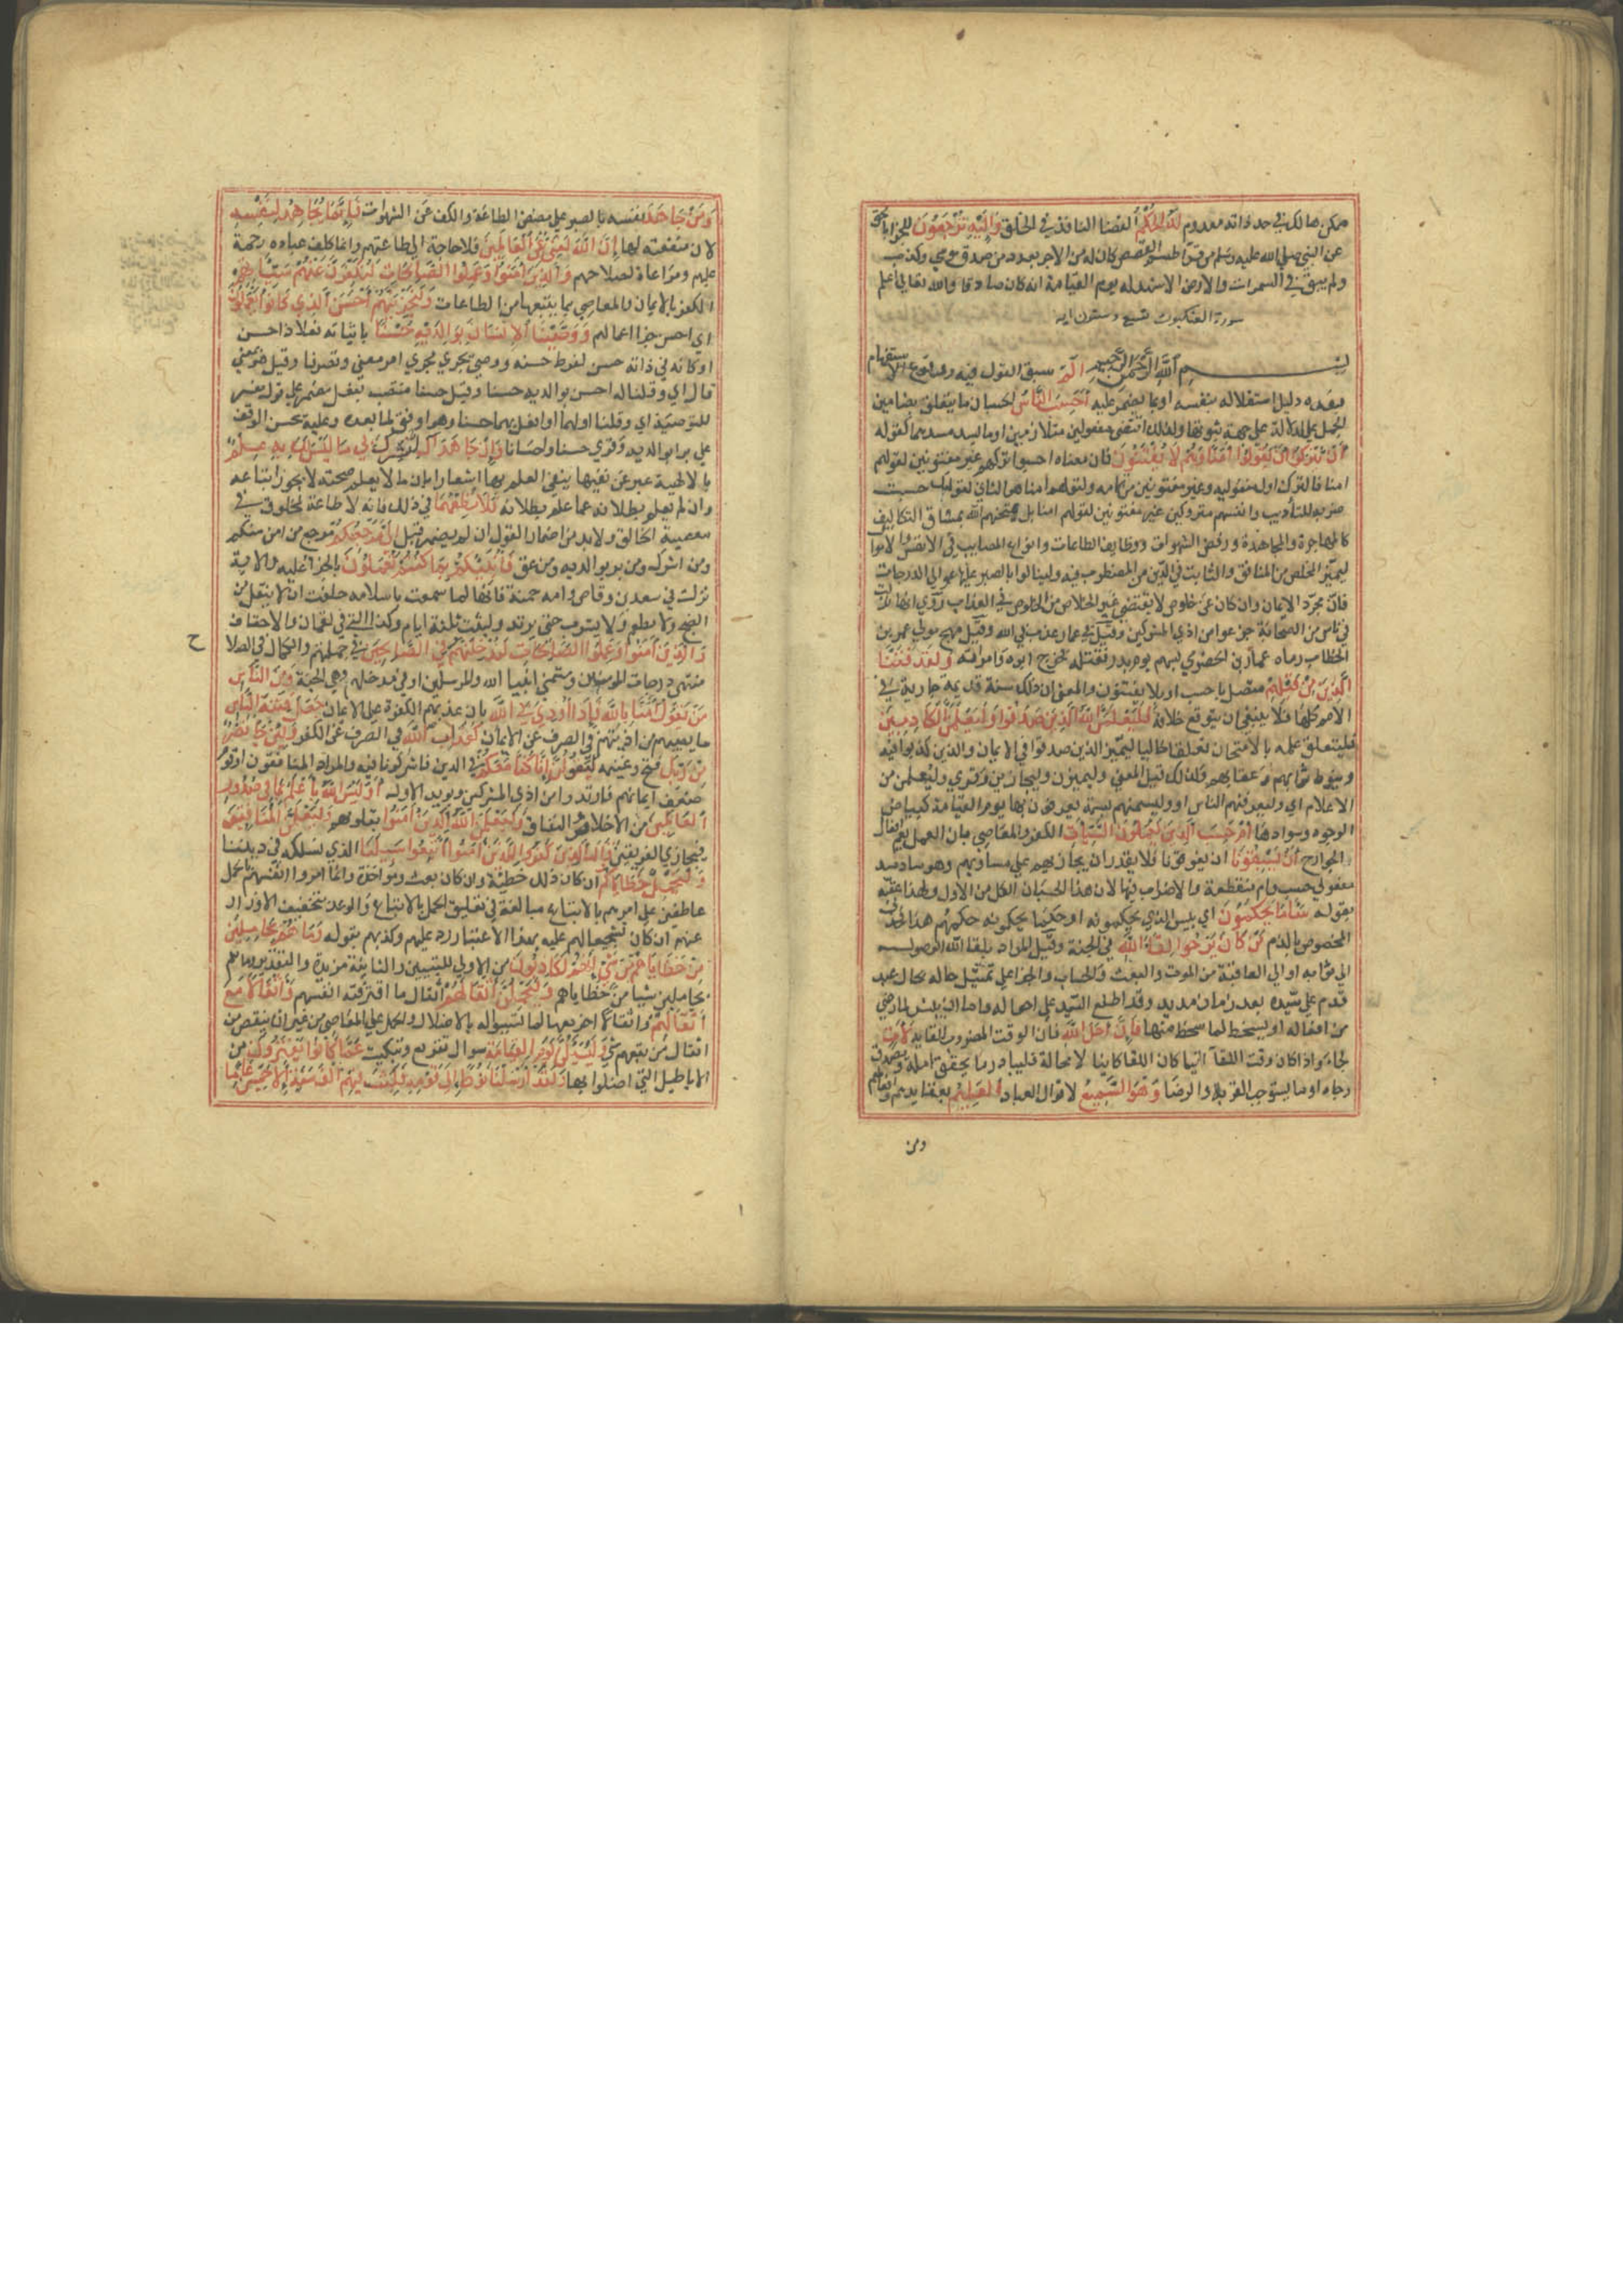 ممكن هالك في حد ذاته معدوم لَهُ الْحُكْمُ القضا النافذ في الخلق وَإِلَيْهِ تُرْجَعُونَ للجزا بالحق
عن النبي صلي الله عليه وسلم من قرا طسم القصص كان له من الاجر بعدد من صدق موسي وكذب
ولم يبق في السموات والارض الا شهد له يوم القيامة انه كان صادقا والله تعالي اعلم
سورة العنكبوت تسع وستون ايه
بسم الله الرحمن الرحيم الٓمٓ سبق القول فيه ووقوع الاستفهام
بعده دليل استقلاله بنفسه او بما يضمر عليه أَحَسِبَ النَّاسُ الحسبان مما يتعلق بمضامين
الجمل للدلالة علي جهة ثبوتها ولذلك اقتضى مفعولين متلازمين او ما يسد مسدهما كقوله
أَنْ يُتْرَكُوا أَنْ يَقُولُوا آمَنَّا وَهُمْ لَا يُفْتَنُونَ فان معناه احسبوا تركهم غير مفتونين لقولهم
امنا فالترك اول مفعوليه وغير مفتونين من تمامه ولقولهم امنا هو الثاني كقولك حسبت
ضربه للتأديب وانفسهم متروكين غير مفتونين لقولهم امنا بل يمتحنهم الله بمشاق التكاليف
كالمهاجرة والمجاهدة ورفض الشهوات ووظايف الطاعات وانواع المصايب في الانفس والاموال
ليتميز المخلص من المنافق والثابت في الدين من المضطرب فيه ولينالوا بالصبر عليها عوالي الدرجات
فان مجرد الايمان وان كان عن خلوص لا يقتضي غير الخلاص من الخلود في العذاب روي انها نزلت
في ناس من الصحابة جزعوا من اذي المشركين وقيل في عمار عذب في الله وقيل مهجع مولي عمر بن
الخطاب رماه عامر بن الحضرمي بسهم يوم بدر فقتله فجزع ابوه وامراته وَلَقَدْ فَتَنَّا
الَّذِينَ مِنْ قَبْلِهِمْ متصل باحسب او بلا يفتنون والمعني ان ذلك سنة قديمة جارية في
الامم كلها فلا ينبغي ان يتوقع خلافه فَلَيَعْلَمَنَّ اللَّهُ الَّذِينَ صَدَقُوا وَلَيَعْلَمَنَّ الْكَاذِبِينَ
فليتعلق علمه بالامتحان تعلقا حاليا يتميز الذين صدقوا في الايمان والذين كذبوا فيه
وينوط ثوابهم وعقابهم ولذلك قيل المعني وليميزن وليجازين وقري وليعلمن من
الاعلام اي وليعرفنهم الناس او وليسمنهم بسمة يعرفون بها يوم القيامة كبياض
الوجوه وسوادها أَمْ حَسِبَ الَّذِينَ يَعْمَلُونَ السَّيِّئَاتِ الكفر والمعاصي فان العمل يعم افعال
الجوارح أَنْ يَسْبِقُونَا ان يفوتونا فلا نقدر ان نجازيهم علي مساويهم وهو ساد مسد
مفعولي حسب وام منقطعة والاضراب فيها لان هذا الحسبان ابطل من الاول ولهذا عقبه
بقوله سَاءَ مَا يَحْكُمُونَ اي بيس الذي يحكمونه او حكما يحكمونه حكمهم هذا فحذف
المخصوص بالذم مَنْ كَانَ يَرْجُوا لِقَاءَ اللَّهِ في الجنة وقيل المراد بلقا الله الوصول
الي ثوابه او الي العاقبة من الموت والبعث والحساب والجزا علي تمثيل حاله بحال عبد
قدم علي سيده بعد زمان مديد وقد اطلع السيد علي احواله فاما ان يلقاه ببشر لما رضي
من افعاله او بسخط لما سخط منها فَإِنَّ أَجَلَ اللَّهِ فان الوقت المضروب للقايه لَآتٍ
لجاء واذا كان وقت اللقآ اتيا كان اللقا كاينا لا محالة فليبادر ما يحقق امله ويصدق
رجاه او ما يستوجب القربة والرضا وَهُوَ السَّمِيعُ لاقوال العباد الْعَلِيمُ بعقايدهم وافعالهم
ومن
وَمَنْ جَاهَدَ نفسه بالصبر علي مضض الطاعة والكف عن الشهوات فَإِنَّمَا يُجَاهِدُ لِنَفْسِهِ
لان منفعته لها إِنَّ اللَّهَ لَغَنِيٌّ عَنِ الْعَالَمِينَ فلا حاجة الي طاعتهم وانما كلف عباده رحمة
عليهم ومراعاة لصلاحهم وَالَّذِينَ آمَنُوا وَعَمِلُوا الصَّالِحَاتِ لَنُكَفِّرَنَّ عَنْهُمْ سَيِّئَاتِهِمْ
الكفر بالايمان والمعاصي بما يتبعها من الطاعات وَلَنَجْزِيَنَّهُمْ أَحْسَنَ الَّذِي كَانُوا يَعْمَلُونَ
اي احسن جزا اعمالهم وَوَصَّيْنَا الْإِنْسَانَ بِوَالِدَيْهِ حُسْنًا بايتائه فعلا ذا حسن
او كانه في ذاته حسن لفرط حسنه ووصي يجري مجري امر معني وتصرفا وقيل هو بمعني
قال اي وقلنا له احسن بوالديه حسنا وقيل حسنا منتصب بفعل مضمر علي قول مفسر
للتوصية اي وقلنا اولهما او افعل بهما حسنا وهو اوفق لما بعده وعليه يحسن الوقف
علي بوالديه وقري حسنا واحسانا وَإِنْ جَاهَدَاكَ لِتُشْرِكَ بِي مَا لَيْسَ لَكَ بِهِ عِلْمٌ
بالالهية عبر عن نفيها بنفي العلم بها اشعارا بان ما لا يعلم صحته لا يجوز اتباعه
وان لم يعلم بطلانه عما علم بطلانه فَلَا تُطِعْهُمَا في ذلك فانه لا طاعة لمخلوق في
معصية الخالق ولا بد من اضمار القول ان لم يضمر قبل إِلَيَّ مَرْجِعُكُمْ مرجع من امن منكم
ومن اشرك ومن بر بوالديه ومن عق فَأُنَبِّئُكُمْ بِمَا كُنْتُمْ تَعْمَلُونَ بالجزا عليه والاية
نزلت في سعد بن وقاص وامه حمنة فانها لما سمعت باسلامه حلفت ان لا ينتقل من
الضح ولا تطعم ولا تشرب حتي يرتد ولبثت ثلثة ايام وكذا التي في لقمان والاحقاف
ح
وَالَّذِينَ آمَنُوا وَعَمِلُوا الصَّالِحَاتِ لَنُدْخِلَنَّهُمْ فِي الصَّالِحِينَ في جملتهم والكمال في الصلا
منتهي درجات المومنين ومتمني انبيا الله والمرسلين او في مدخلهم وهي الجنة وَمِنَ النَّاسِ
مَنْ يَقُولُ آمَنَّا بِاللَّهِ فَإِذَا أُوذِيَ فِي اللَّهِ بان عذبهم الكفرة علي الايمان جَعَلَ فِتْنَةَ النَّاسِ
ما يصيبهم من اذيتهم في الصرف عن الايمان كَعَذَابِ اللَّهِ في الصرف عن الكفر وَلَئِنْ جَاءَ نَصْرٌ
مِنْ رَبِّكَ فتح وغنيمة لَيَقُولُنَّ إِنَّا كُنَّا مَعَكُمْ في الدين فاشركونا فيه والمراد المنافقون او قوم
ضعف ايمانهم فارتدوا من اذي المشركين ويويد الاول أَوَلَيْسَ اللَّهُ بِأَعْلَمَ بِمَا فِي صُدُورِ
الْعَالَمِينَ من الاخلاص والنفاق وَلَيَعْلَمَنَّ اللَّهُ الَّذِينَ آمَنُوا بقلوبهم وَلَيَعْلَمَنَّ الْمُنَافِقِينَ
فيجازي الفريقين وَقَالَ الَّذِينَ كَفَرُوا لِلَّذِينَ آمَنُوا اتَّبِعُوا سَبِيلَنَا الذي نسلكه في ديننا
وَلْنَحْمِلْ خَطَايَاكُمْ ان كان ذلك خطية وان كان بعث ومواخذة وانما امروا انفسهم بالحمل
عاطفين علي امرهم بالاتباع مبالغة في تعليق الحمل بالاتباع والوعد بتخفيف الاوزار
عنهم ان كان تشجيعا لهم عليه بهذا الاعتبار رد عليهم وكذبهم بقوله وَمَا هُمْ بِحَامِلِينَ
مِنْ خَطَايَاهُمْ مِنْ شَيْءٍ إِنَّهُمْ لَكَاذِبُونَ من الاولي للتبيين والثانية مزيدة والتقدير وما هم
بحاملين شيا من خطاياهم وَلَيَحْمِلُنَّ أَثْقَالَهُمْ اثقال ما اقترفته انفسهم وَأَثْقَالًا مَعَ
أَثْقَالِهِمْ واثقالا اخر معها لما تسببوا له بالاضلال والحمل علي المعاصي من غير ان ينقص من
اثقال من تبعهم شي وَلَيُسْأَلُنَّ يَوْمَ الْقِيَامَةِ سوال تقريع وتبكيت عَمَّا كَانُوا يَفْتَرُونَ من
الاباطيل التي اضلوا بها وَلَقَدْ أَرْسَلْنَا نُوحًا إِلَى قَوْمِهِ فَلَبِثَ فِيهِمْ أَلْفَ سَنَةٍ إِلَّا خَمْسِينَ عَامًا